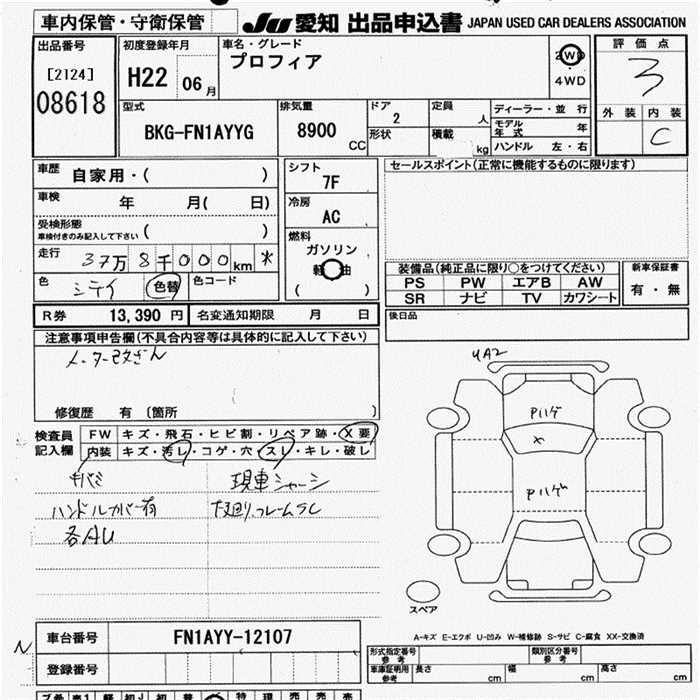 車内保管・守衛保管
JU 愛知 出品申込書 JAPAN USED CAR DEALERS ASSOCIATION
出品番号
[2124]
08618
初度登録年月
H22 06月
車名・グレード
プロフィア
2WD
・
4WD
評価点
3
外装 内装
C
型式
BKG-FN1AYYG
排気量
8900 CC
ドア
2
形状
定員 人
積載 kg
ディーラー・並 行
モデル年式 年
ハンドル 左・右
車歴 自家用・( )
車検 年 月( 日)
受検形態
車検付きのみ記入して下さい ( )
走行 37万8千000km *
色 シテイ 色替 色コード
シフト
7F
冷房
AC
燃料
ガソリン
軽油
( )
セールスポイント(正常に機能するものに限ります)
装備品(純正品に限り○をつけてください)
PS PW エアB AW
SR ナビ TV カワシート
新車保証書
有・無
R券 13,390円 名変通知期限 月 日
後日品
注意事項申告欄(不具合内容等は具体的に記入して下さい)
メーター改ざん
修復歴 有〔箇所 〕
検査員記入欄
FW キズ・飛石・ヒビ割・リペア跡・X要
内装 キズ・汚レ・コゲ・穴・スレ・キレ・破レ
キバミ
ハンドルカバー有
各AU
現車シャーシ
下廻り,フレームSC
UA2
Pハゲ
×
Pハゲ
スペア
A-キズ E-エクボ U-凹み W-補修跡 S-サビ C-腐食 XX-交換済
車台番号 FN1AYY-12107
登録番号
N
形式指定番号
参考
類別区分番号
参考
車庫証明用
参考
長さ cm 幅 cm 高さ cm